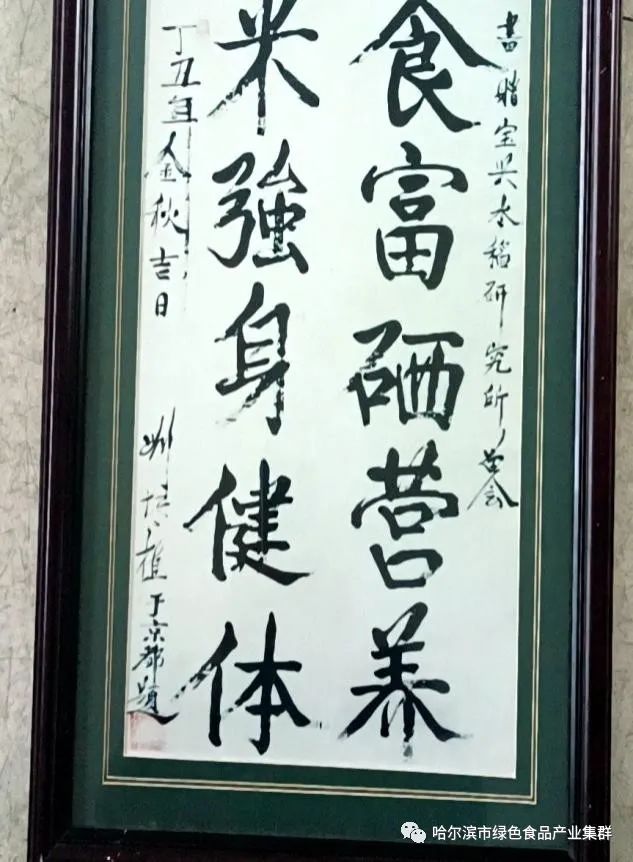 書贈宝兴水稻研究所
食富硒营养
米強身健体
丁丑年金秋吉日
刘培植于京都題
哈尔滨市绿色食品产业集群